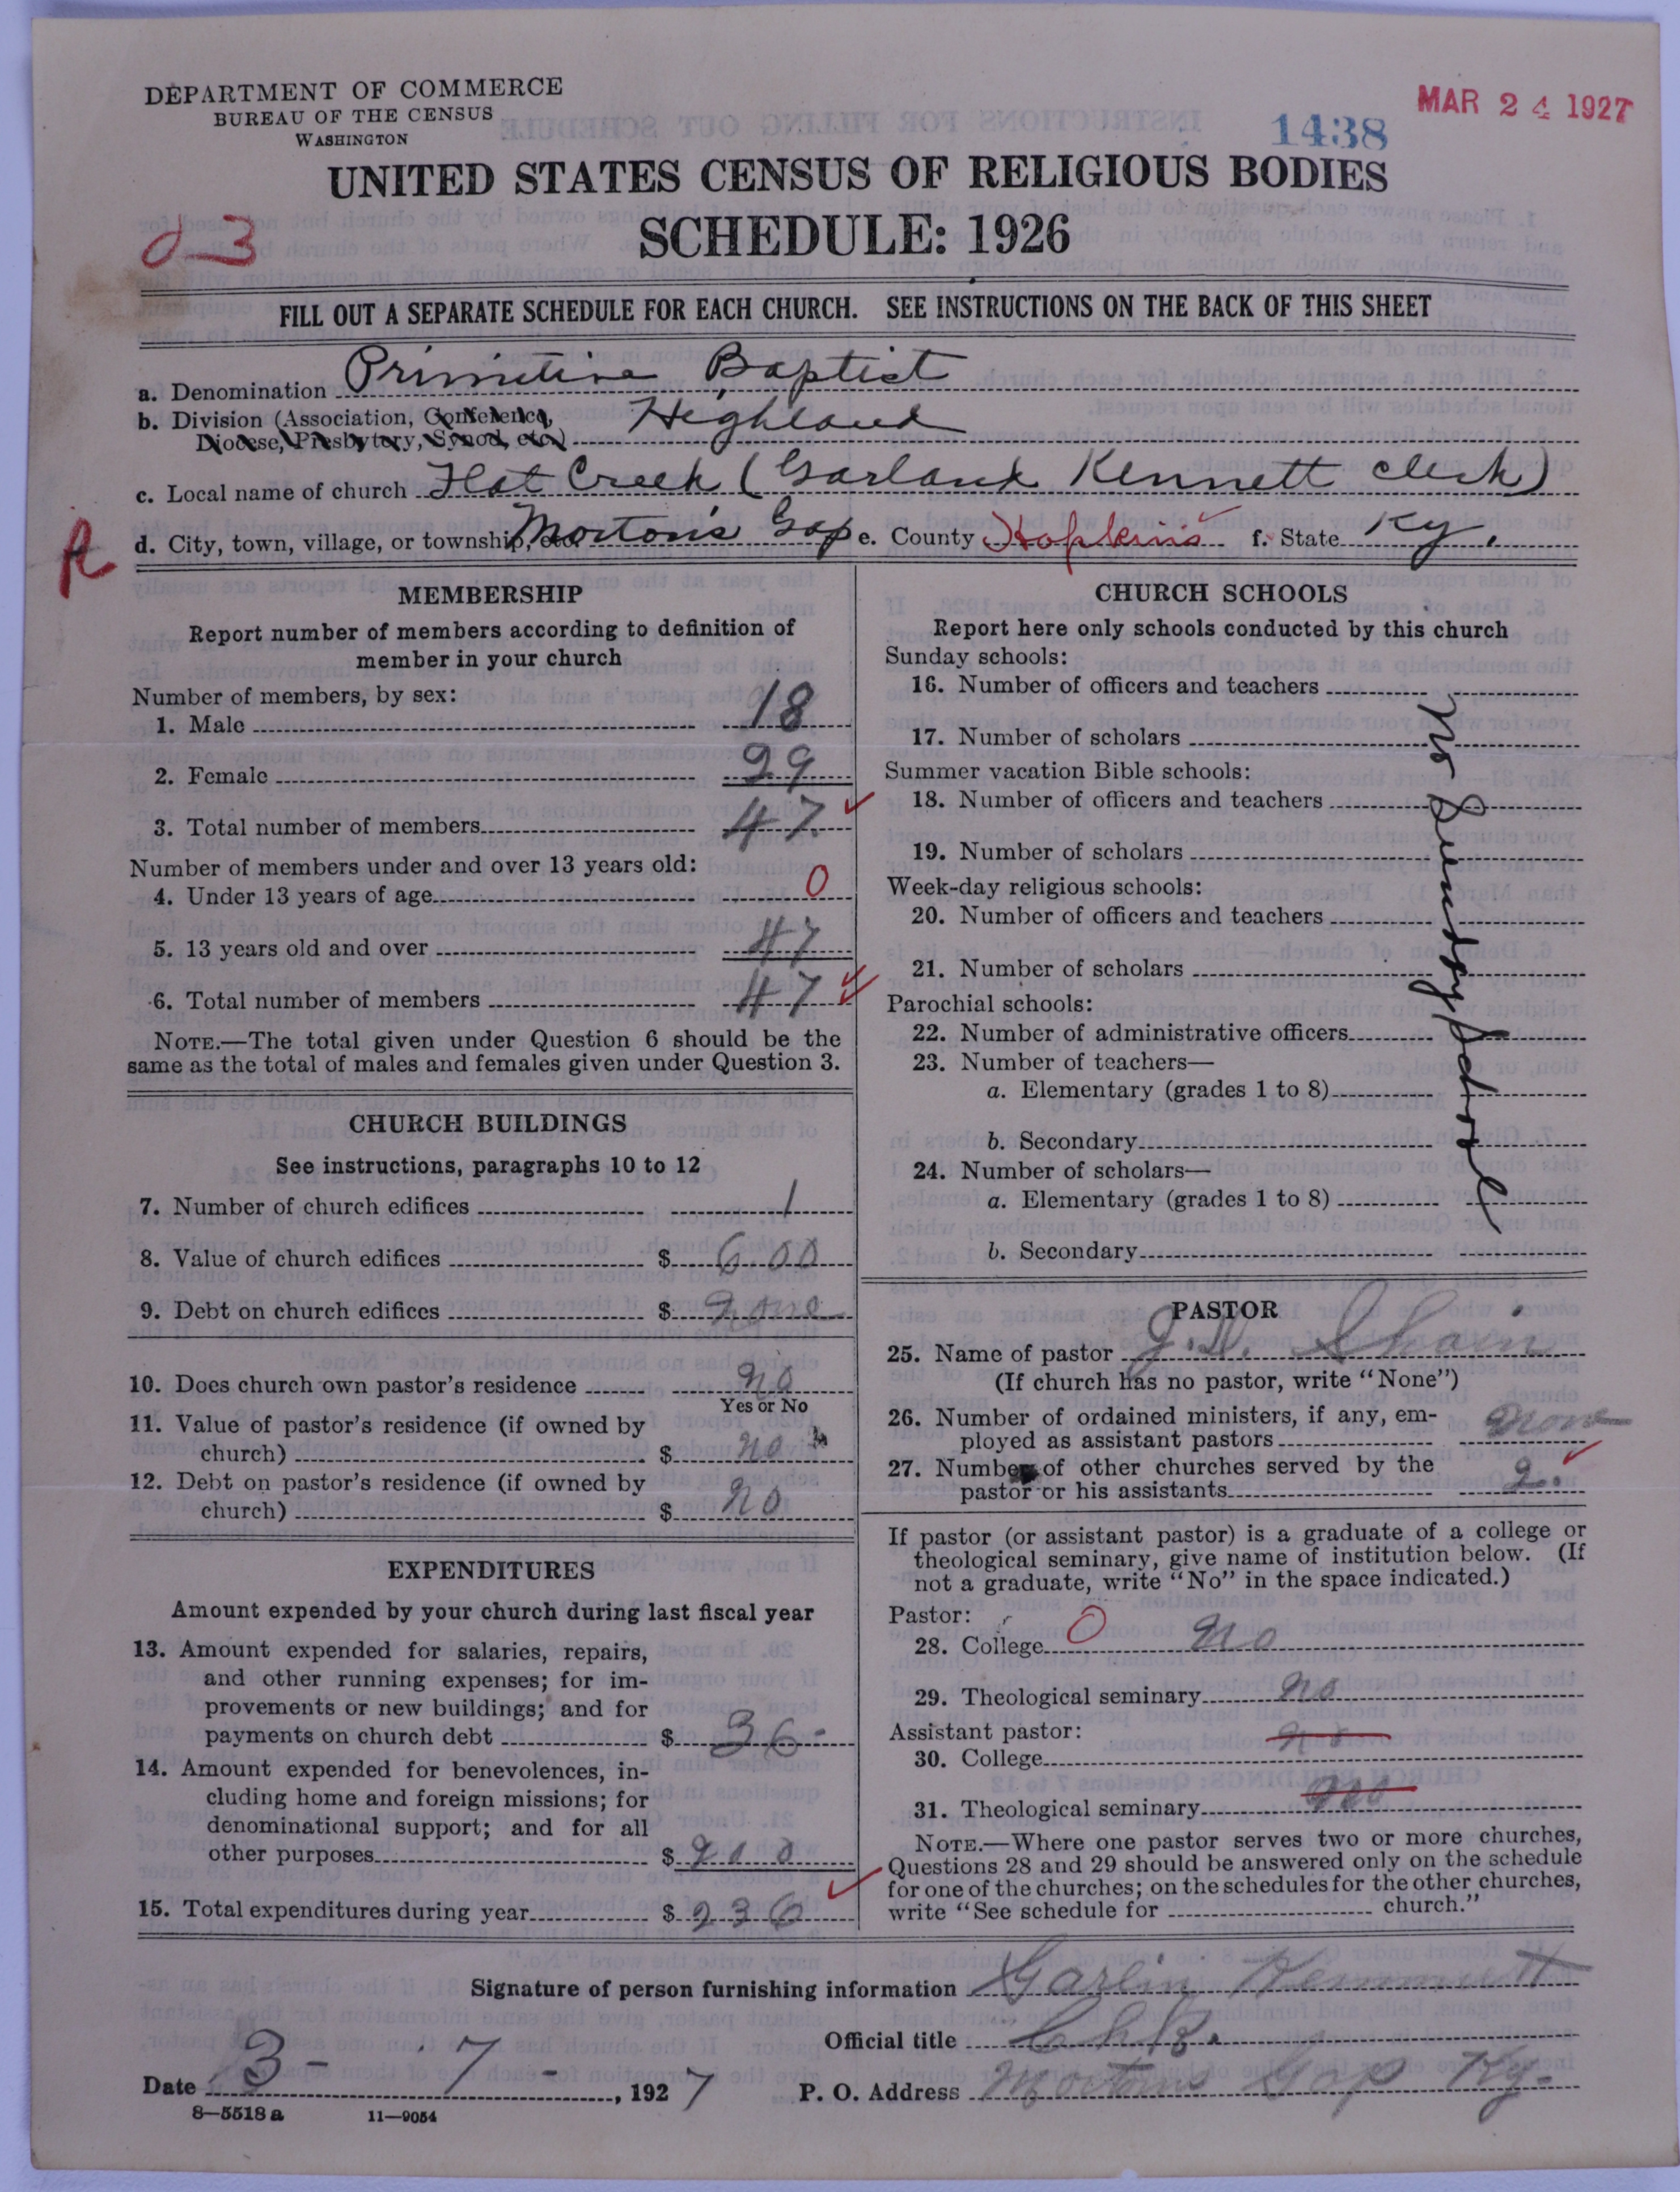 DEPARTMENT OF COMMERCE
BUREAU OF THE CENSUS
WASHINGTON
1438
MAR 24 1927
UNITED STATES CENSUS OF RELIGIOUS BODIES
SCHEDULE: 1926
FILL OUT A SEPARATE SCHEDULE FOR EACH CHURCH. SEE INSTRUCTIONS ON THE BACK OF THIS SHEET
a. Denomination Primitive Baptist
b. Division (Association, Conference, Highland
Diocese, Presbytery, Synod, etc.)
c. Local name of church Flat Creek (Garland Kennett clerk)
d. City, town, village, or township, etc. Morton's Gap e. County Hopkins f. State Ky.
MEMBERSHIP
Report number of members according to definition of
member in your church
Number of members, by sex:
1. Male 18
2. Female 29
3. Total number of members 47
Number of members under and over 13 years old:
4. Under 13 years of age 0
5. 13 years old and over 47
6. Total number of members 47
NOTE.—The total given under Question 6 should be the
same as the total of males and females given under Question 3.
CHURCH BUILDINGS
See instructions, paragraphs 10 to 12
7. Number of church edifices 1
8. Value of church edifices $ 600
9. Debt on church edifices $ none
10. Does church own pastor's residence no
Yes or No
11. Value of pastor's residence (if owned by
church) $ no
12. Debt on pastor's residence (if owned by
church) $ no
EXPENDITURES
Amount expended by your church during last fiscal year
13. Amount expended for salaries, repairs,
and other running expenses; for im-
provements or new buildings; and for
payments on church debt $ 36-
14. Amount expended for benevolences, in-
cluding home and foreign missions; for
denominational support; and for all
other purposes $ 200
15. Total expenditures during year $ 236
CHURCH SCHOOLS
Report here only schools conducted by this church
Sunday schools:
16. Number of officers and teachers
17. Number of scholars
Summer vacation Bible schools:
18. Number of officers and teachers
19. Number of scholars
Week-day religious schools:
20. Number of officers and teachers
21. Number of scholars
Parochial schools:
22. Number of administrative officers
23. Number of teachers—
a. Elementary (grades 1 to 8)
b. Secondary
24. Number of scholars—
a. Elementary (grades 1 to 8)
b. Secondary
No Sunday School
PASTOR
25. Name of pastor J.D. Shain
(If church has no pastor, write "None")
26. Number of ordained ministers, if any, em-
ployed as assistant pastors none
27. Number of other churches served by the
pastor or his assistants 2.
If pastor (or assistant pastor) is a graduate of a college or
theological seminary, give name of institution below. (If
not a graduate, write "No" in the space indicated.)
Pastor:
28. College 0 no
29. Theological seminary no
Assistant pastor:
30. College no
31. Theological seminary no
NOTE.—Where one pastor serves two or more churches,
Questions 28 and 29 should be answered only on the schedule
for one of the churches; on the schedules for the other churches,
write "See schedule for church."
Signature of person furnishing information Garlin
Official title Clk.
Date 3-7-, 1927 P. O. Address Mortons Gap Ky.
8—5518 a 11—9054